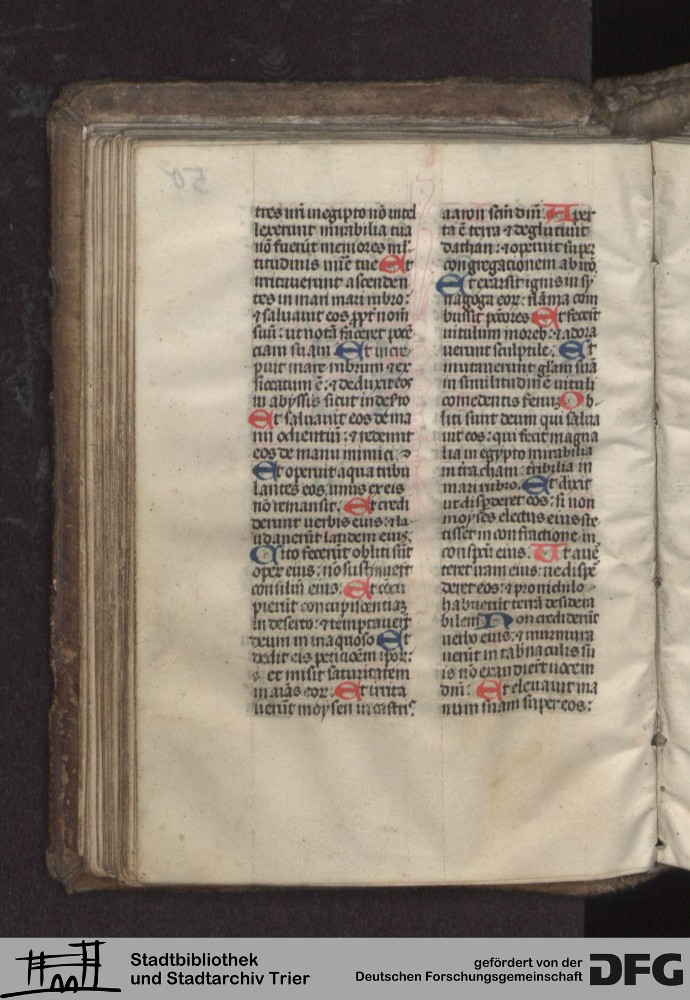 tres nr̄i in egipto nō intel
lexerunt mirabilia tua
nō fuerūt memores ml
titudinis mie tue Et
irrituerunt ascenden
tes in mari mari rubro:
⁊ saluauit eos ꝓpt̄ nom̄
suū: ut notā faceret potē
ciam suam Et incre
puit mare rubrum ⁊ ex
siccatum ē: ⁊ deduxit eos
in abyssis sicut in desto
Et saluauit eos de ma
nu odientiū: ⁊ redemit
eos de manu inimici
Et operuit aqua tribu
lantes eos unus ex eis
nō remansit. Et credi
derunt uerbis eius: ⁊ la
udauerūt laudem eius.
Cito fecerūt obliti sūt
oper eius: nō sustinuerūt
consiliū eius. Et cōcu
pierūt concupiscentiaꝫ
in deserto: ⁊ temptauerūt
deum in inaquoso Et
dedit eis peticiōem ip̄oꝝ:
et misit saturitatem
in aīas eoꝝ. Et irrita
uerūt moysen in castris
aaron scm̄ dn̄i. Aper
ta ē terra ⁊ deglutiuit
dathan: ⁊ operuit super
congregationem abirō.
Et exarsit ignis in sy
nagoga eoꝝ: flāma com
bussit pctores Et fecerūt
uitulum in oreb: ⁊ adora
uerunt sculptile. Et
mutauerunt glāam suā
in similitudinē uituli
comedentis fenū Ob
liti sunt deum qui salua
uit eos: qui fecit magna
lia in egypto mirabilia
in terra cham: tribilia in
mari rubro. Et dixit
ut disꝑderet eos: si non
moyses electus eius ste
tisset in confractione in
conspcū eius. Ut auē
teret iram eius: ne dispē
deret eos: ⁊ pro nichilo
habuerūt terrā desidera
bilem Non crediderūt
uerbo eius: ⁊ murmura
uerūt in tab̄naculis su
is nō exaudierūt uocem
dn̄i: Et eleuauit ma
num suam super eos:
Stadtbibliothek
und Stadtarchiv Trier
gefördert von der
Deutschen Forschungsgemeinschaft
DFG